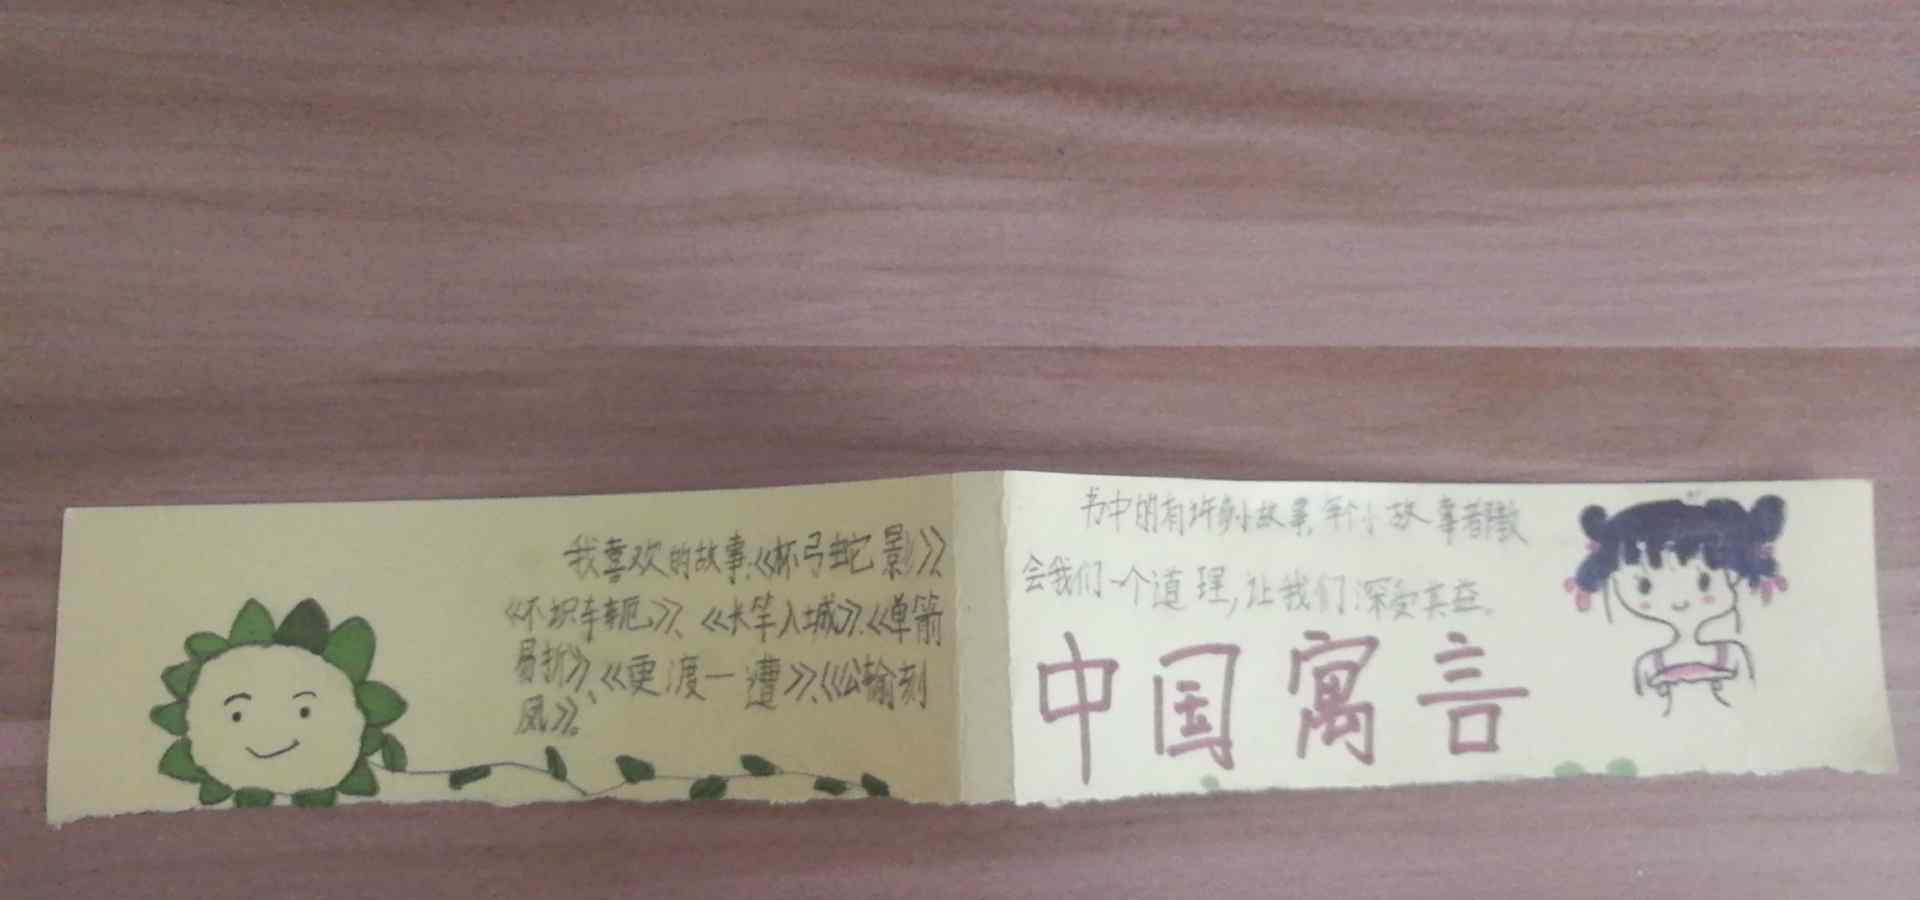 我喜欢的故事:《杯弓蛇影》、
《不识车轭》、《长竿入城》、《单箭
易折》、《更渡一遭》、《公输刻
凤》。
书中的有许多小故事,每个小故事都教
会我们一个道理,让我们深受其益。
中国寓言